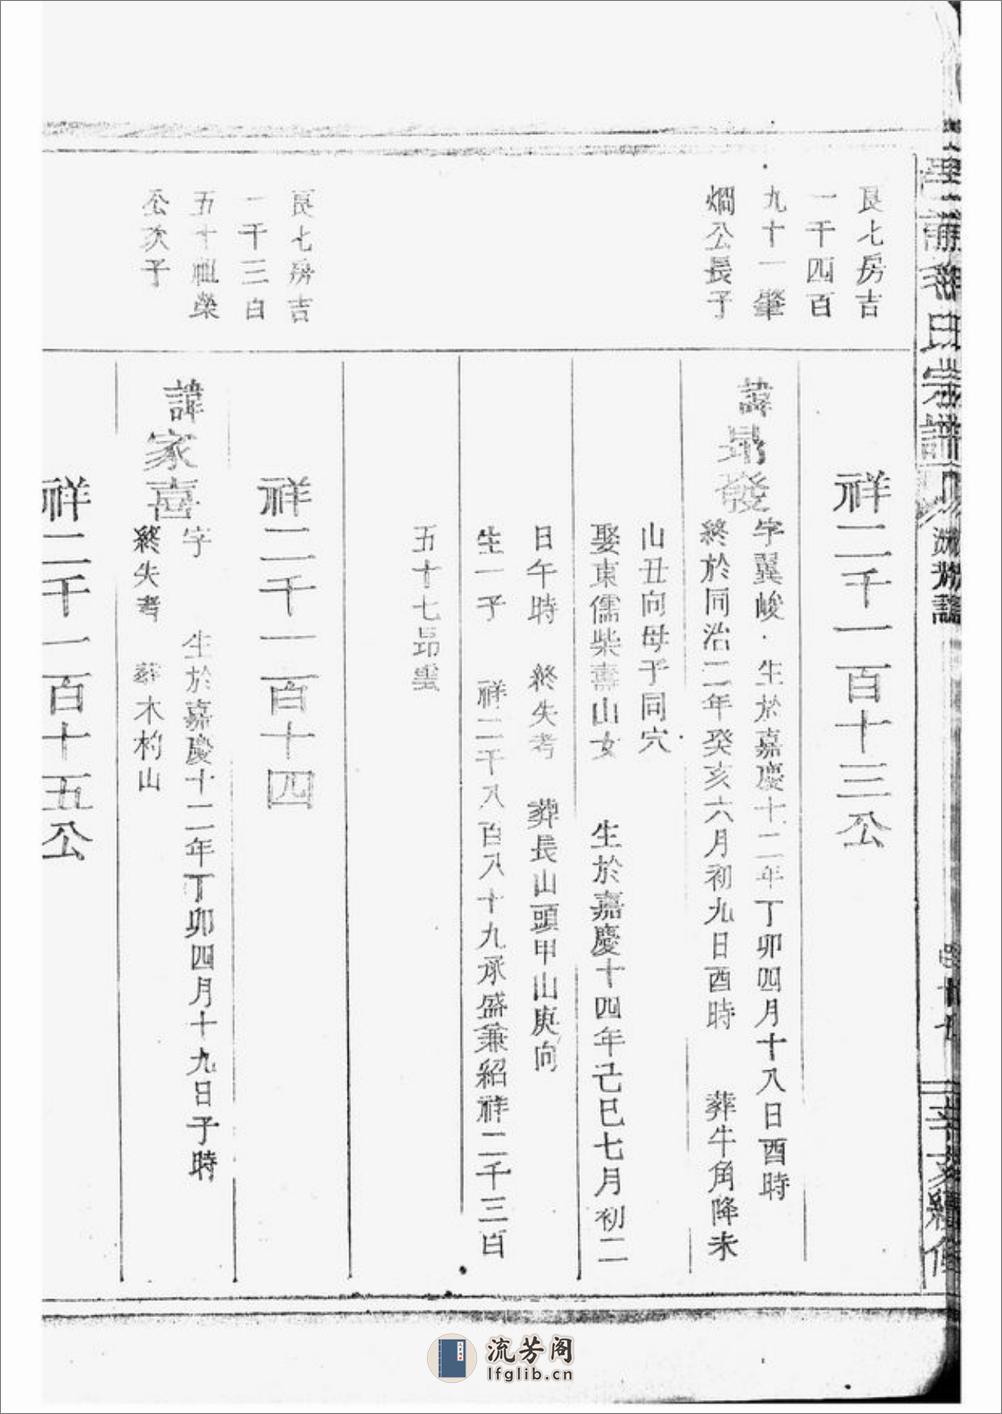 氏宗譜
良七房吉
一千四百
九十一肇
燗公長子
祥二千一百十三公
諱昻發
字翼峻 生於嘉慶十二年丁卯四月十八日酉時
終於同治二年癸亥六月初九日酉時 葬牛角降未
山丑向母子同穴
娶東儒柴壽山女 生於嘉慶十四年己巳七月初二
日午時 終失考 葬長山頭甲山庚向
生一子 祥二千八百八十九承盛兼紹祥二千三百
五十七昻璺
良七房吉
一千三百
五十祖榮
公次子
祥二千一百十四
諱家喜
字 生於嘉慶十二年丁卯四月十九日子時
終失考 葬木杓山
祥二千一百十五公
流芳阁
lfglib.cn